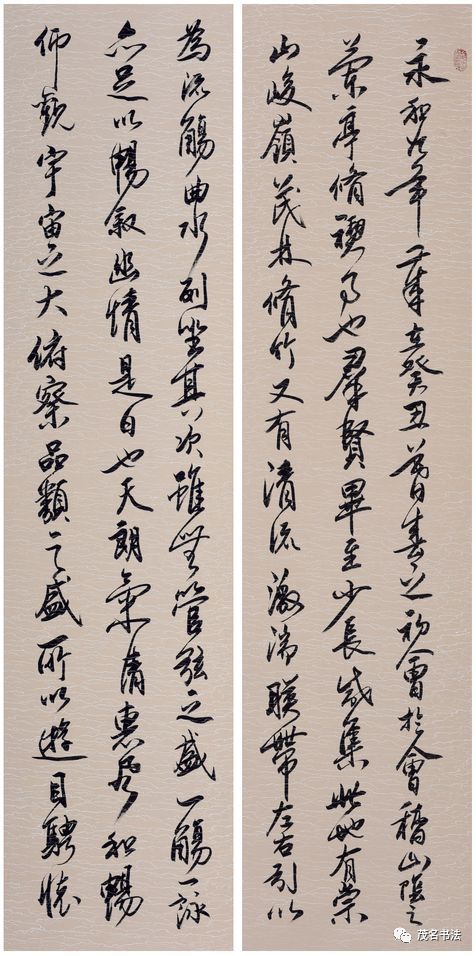 永和九年歲在癸丑暮春之初會於會稽山陰之
蘭亭脩禊事也羣賢畢至少長咸集此地有崇
山峻嶺茂林脩竹又有清流激湍映帶左右引以
為流觴曲水列坐其次雖無管弦之盛一觴一詠
亦足以暢敘幽情是日也天朗氣清惠風和暢
仰觀宇宙之大俯察品類之盛所以遊目騁懷
茂名书法